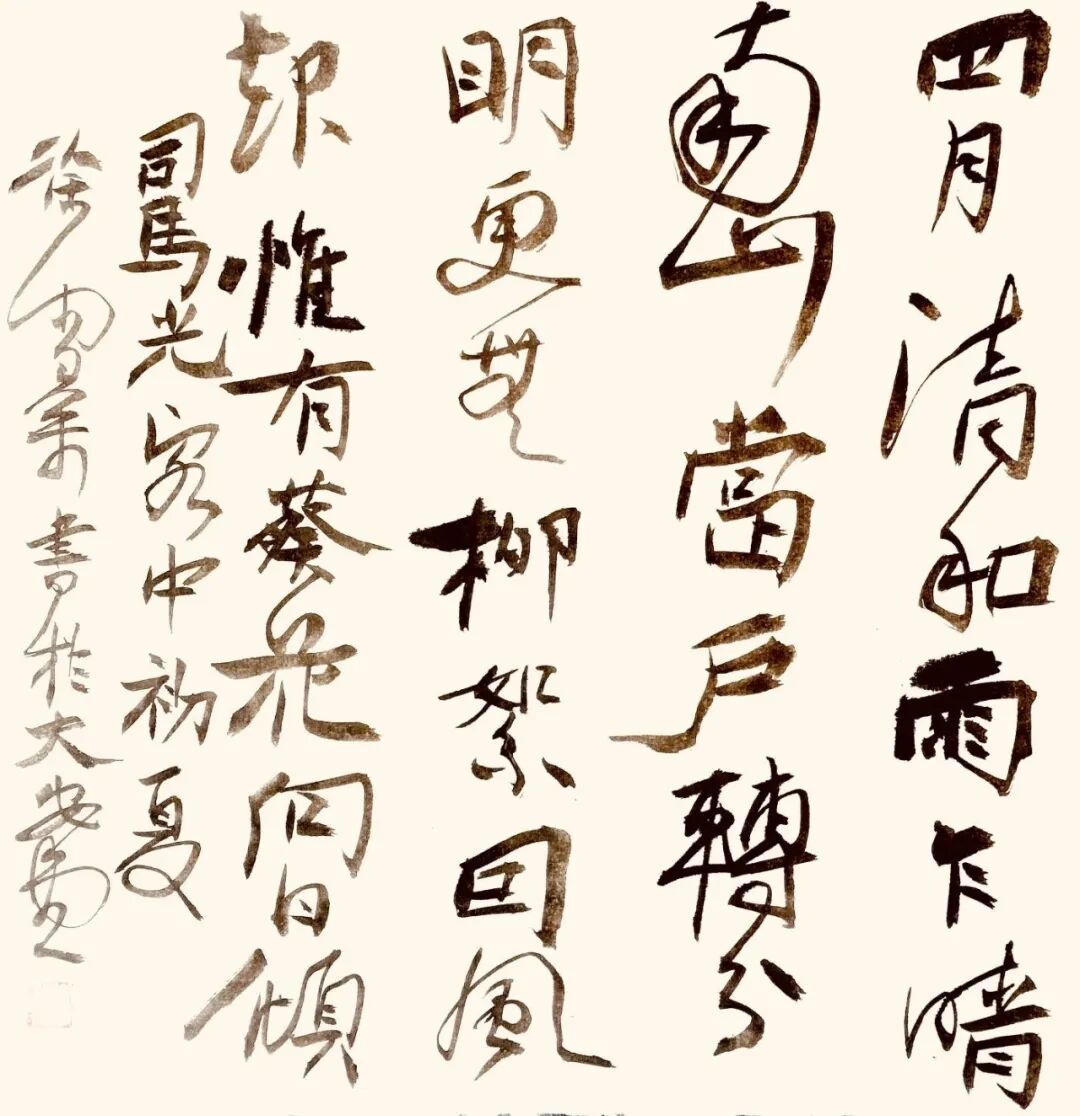 四月清和雨乍晴
南山當户轉分
明更無柳絮因風
起惟有葵花向日傾
司馬光客中初夏
徐 書於大